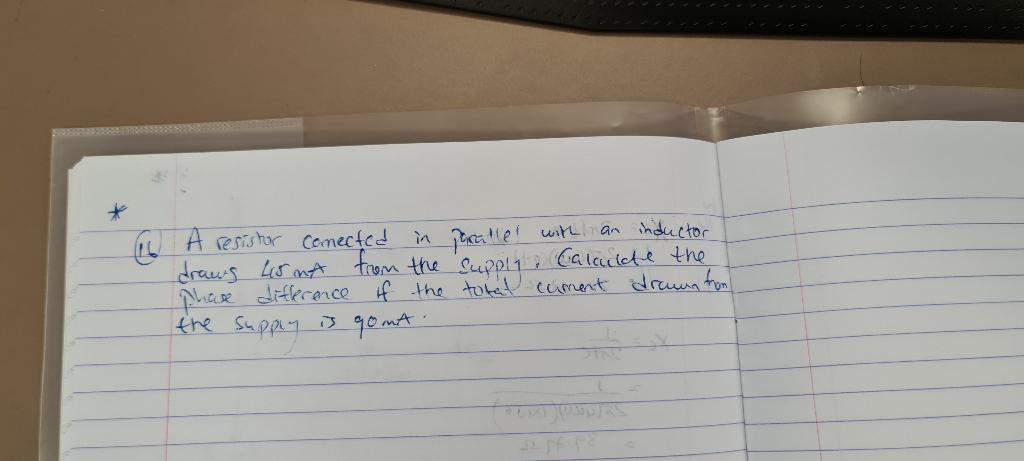 *
16 A resistor connected in parallel with an inductor
draws 45 mA from the supply. Calculate the
phase difference if the total current drawn from
the supply is 90mA.